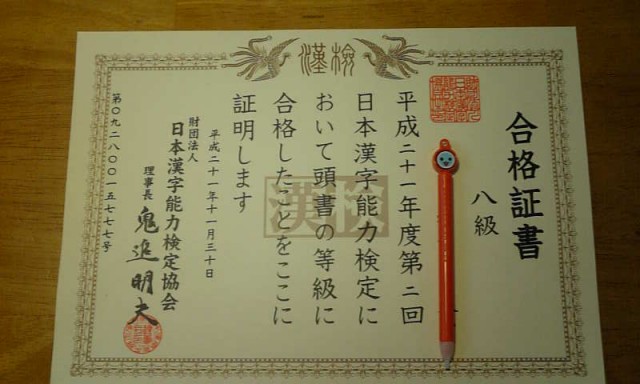 漢検
合格証書
八級
平成二十一年度第二回
日本漢字能力検定に
おいて頭書の等級に
合格したことをここに
証明します
平成二十一年十一月三十日
財団法人
日本漢字能力検定協会
理事長 鬼追明夫
第〇九二八〇〇一五七七七号
漢検